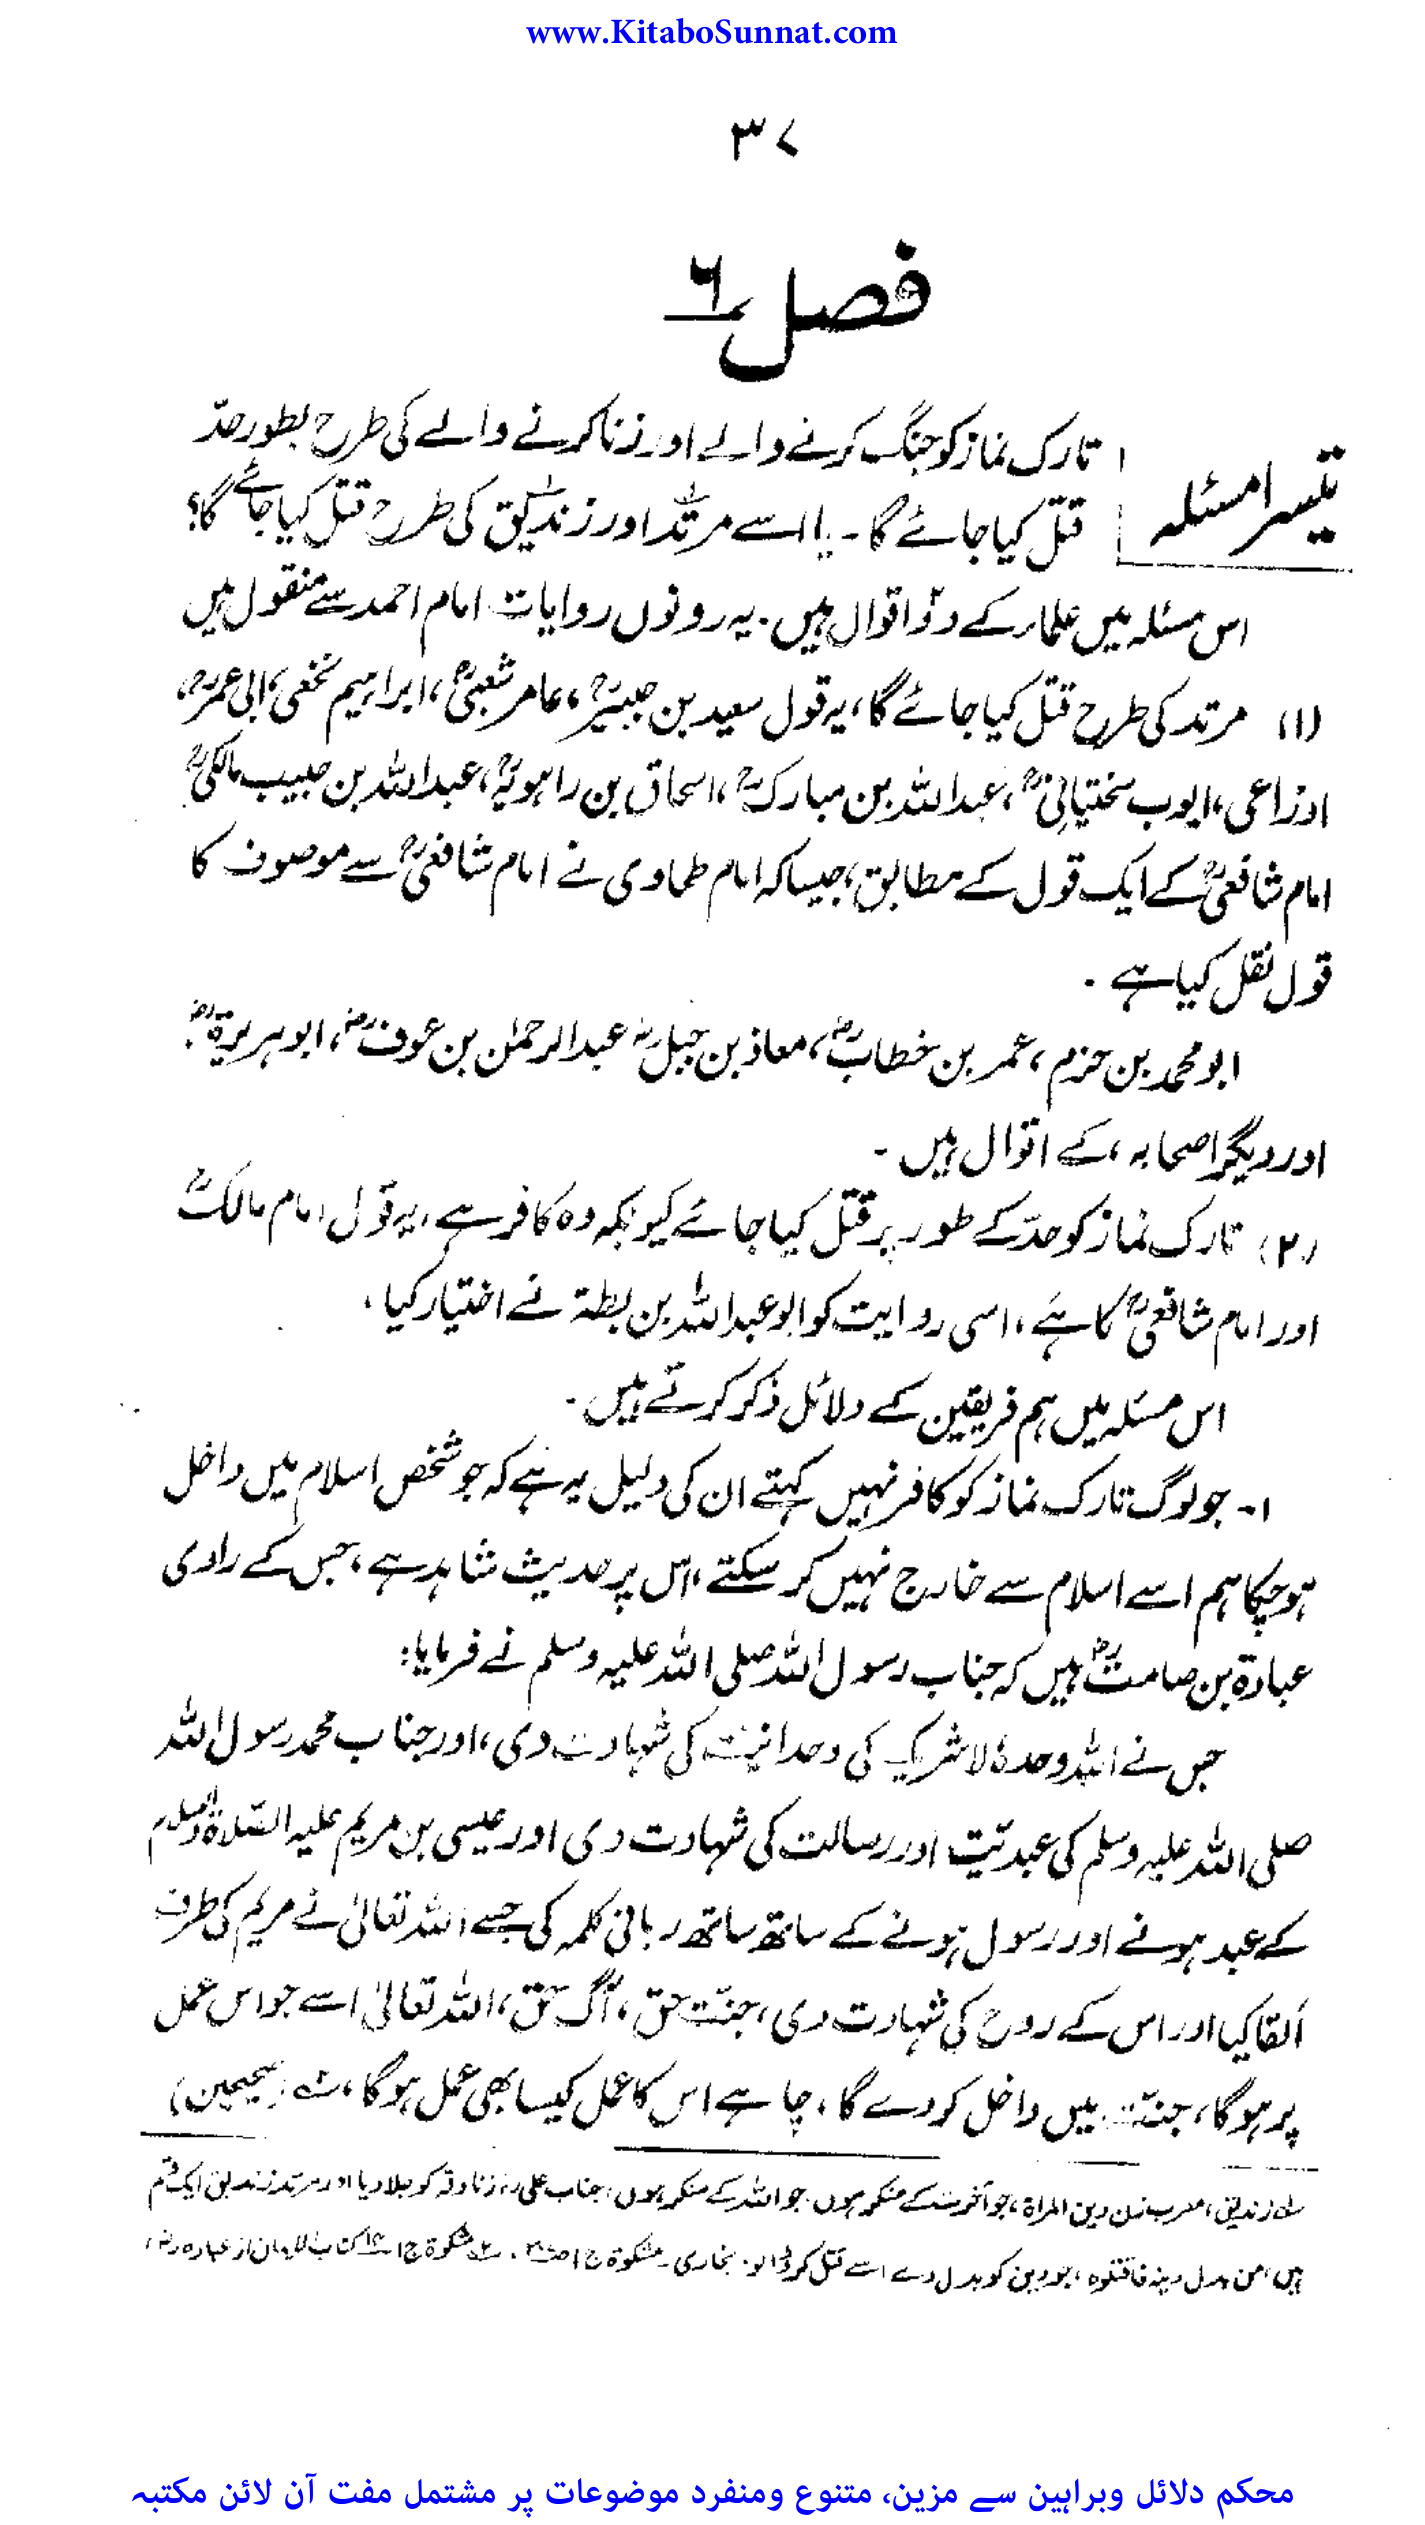 www.KitaboSunnat.com
۳۷
فصل ۶
تیسرا مسئلہ
تارک نماز کو جنگ کرنے والے اور زنا کرنے والے کی طرح بطور حدّ
قتل کیا جائے گا ۔ یا اسے مرتد اور زندیق کی طرح قتل کیا جائے گا؟
اس مسئلہ میں علمار کے دو اقوال ہیں. یہ دونوں روایات امام احمد سے منقول ہیں
(۱) مرتد کی طرح قتل کیا جائے گا، یہ قول سعید بن جبیرؒ، عامر شعبیؒ، ابراہیم نخعی، ابی عمرؒ،
اوزاعی، ایوب سختیانیؒ، عبداللہ بن مبارکؒ، اسحاق بن راہویہؒ، عبداللہ بن حبیب مالکیؒ
امام شافعیؒ کے ایک قول کے مطابق، جیسا کہ امام طحاوی نے امام شافعیؒ سے موصوف کا
قول نقل کیا ہے ۔
ابو محمد بن حزم ، عمر بن خطابؓ، معاذ بن جبلؓ عبدالرحمٰن بن عوفؓ، ابو ہریرۃؓ
اور دیگر اصحابہ، کے اقوال ہیں ۔
(۲) تارک نماز کو حدّ کے طور پر قتل کیا جائے کیونکہ وہ کافر ہے، یہ قول امام مالکؒ
اور امام شافعیؒ کا ہے، اسی روایت کو ابو عبداللہ بن بطۃ نے اختیار کیا ،
اس مسئلہ میں ہم فریقین کے دلائل ذکر کرتے ہیں ۔
۱۔ جو لوگ تارک نماز کو کافر نہیں کہتے ان کی دلیل یہ ہے کہ جو شخص اسلام میں داخل
ہو چکا ہم اسے اسلام سے خارج نہیں کر سکتے، اس پر حدیث شاہد ہے، جس کے راوی
عبادۃ بن صامتؓ ہیں کہ جناب رسول اللہ صلی اللہ علیہ وسلم نے فرمایا:
جس نے اللہ وحدہٗ لا شریک کی وحدانیت کی شہادت دی، اور جناب محمد رسول اللہ
صلی اللہ علیہ وسلم کی عبدیّت اور رسالت کی شہادت دی اور عیسی بن مریم علیہ الصّلاۃ والسلام
کے عبد ہونے اور رسول ہونے کے ساتھ ساتھ ربانی کلمہ کی جسے اللہ تعالیٰ نے مریم کی طرف
اَلقا کیا اور اس کے روح کی شہادت دی، جنّت حق، آگ حق، اللہ تعالیٰ اسے جو اس عمل
پر ہوگا، جنّت میں داخل کر دے گا، چاہے اس کا عمل کیسا بھی عمل ہوگا، (صحیحین)
زندیق، معرب زن دین المراۃ، جو آخرت کے منکر ہوں جو اللہ کے منکر ہوں، جناب علی زنادقہ کو جلا دیا اور مرتد زندیق ایک قسم
ہیں، من بدل دینہ فاقتلوہ، جو دین کو بدل دے اسے قتل کر ڈالو. بخاری ۔ مشکوۃ ج۱ مشکوۃ ج۱ کتاب الایمان از عبادہ
محکم دلائل وبراہین سے مزین، متنوع ومنفرد موضوعات پر مشتمل مفت آن لائن مکتبہ